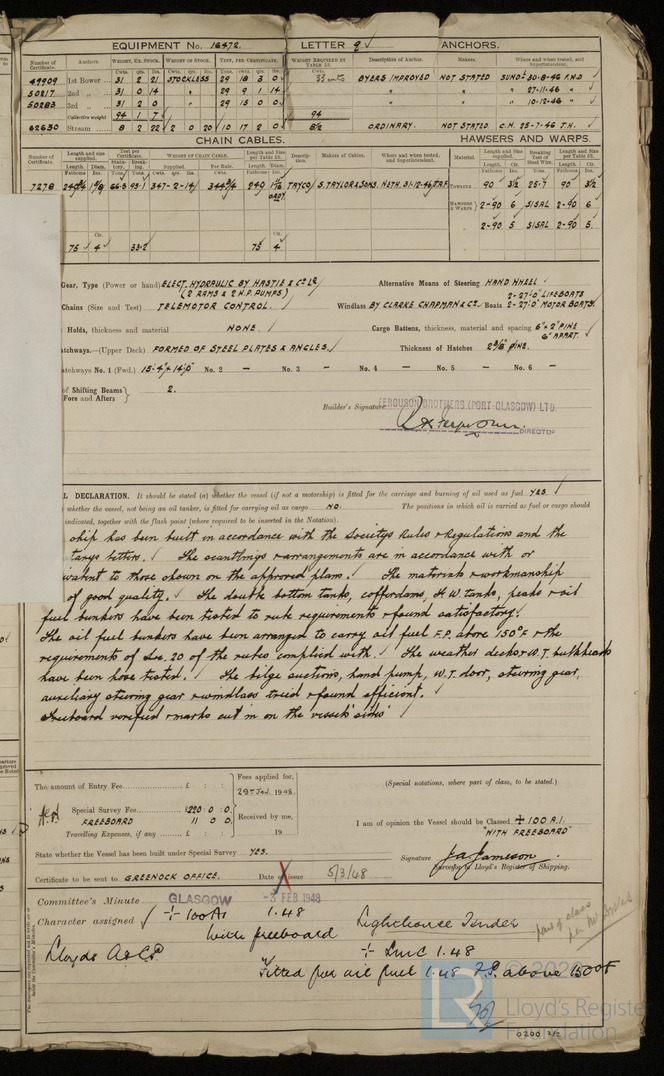 EQUIPMENT No. 16472. LETTER q ANCHORS.
Number of Certificate. Anchors. WEIGHT, EX. STOCK. WEIGHT OF STOCK. TEST, PER CERTIFICATE. WEIGHT REQUIRED BY TABLE 53. Description of Anchor. Makers. Where and when tested, and Superintendent.
Cwts. qrs. lbs. Cwts. qrs. lbs. Tons. cwts. qrs. lbs. Cwts.
49909 1st Bower 31 2 21 STOCKLESS 29 18 3 0 BYERS IMPROVED NOT STATED SUND. 30-8-46
50217 2nd " 31 0 14 " 29 9 1 14 " " " 27-11-46 "
50283 3rd " 31 2 0 " 29 15 0 0 " " " 10-12-46 "
Collective weight 94 1 7 94
62630 Stream 8 2 22 2 0 20 10 17 2 0 8½ ORDINARY. NOT STATED C.H. 25-7-46 T.H.
CHAIN CABLES. HAWSERS AND WARPS.
Number of Certificate. Length and size supplied. Test per Certificate. WEIGHT OF CHAIN CABLE. Length and Size per Table 53. Description. Makers of Cables. Where and when tested, and Superintendent. Material. Length and size supplied. Breaking Test of Steel Wire. Length and Size per Table 53.
Length. Diam. Supplied. Per Rule. Length. Diam. Length. Cir. Length. Cir.
7278 347-2-14 240 TAYCO S. TAYLOR & SONS. NETH. 31-12-46 TOWLINE 90 3½ 25.7 90 3½
HAWSERS & WARPS 2-90 6 SISAL 2-90 6
2-90 5 SISAL 2-90 5
75 4 33.2 75 4
Gear, Type (Power or hand) ELECT. HYDRAULIC BY HASTIE & Co. Ld Alternative Means of Steering HAND WHEEL
(2 RAMS & 2 H.P. PUMPS) 2-27'.0" LIFEBOATS
Chains (Size and Test) TELEMOTOR CONTROL. Windlass BY CLARKE CHAPMAN & Co. Boats 2-27'.0" MOTOR BOATS.
Holds, thickness and material NONE. Cargo Battens, thickness, material and spacing 6" × 2" PINE
6" APART.
atchways.—(Upper Deck) FORMED OF STEEL PLATES & ANGLES Thickness of Hatches 2⅜" PINE.
atchways No. 1 (Fwd.) 15'-4" × 14'.0" No. 2 — No. 3 — No. 4 — No. 5 — No. 6 —
of Shifting Beams
Fore and Afters } 2.
Builder's Signature FERGUSON BROTHERS (PORT-GLASGOW) LTD
DIRECTOR
L DECLARATION. It should be stated (a) whether the vessel (if not a motorship) is fitted for the carriage and burning of oil used as fuel YES.
whether the vessel, not being an oil tanker, is fitted for carrying oil as cargo NO. The positions in which oil is carried as fuel or cargo should
indicated, together with the flash point (where required to be inserted in the Notation).
ship has been built in accordance with the Societys Rules & Regulations and the
tarys letters. The scantlings & arrangements are in accordance with or
valent to those shown on the approved plans. The materials & workmanship
of good quality. The double bottom tanks, cofferdams, F.W. tanks, peaks & oil
fuel bunkers have been tested to rule requirements & found satisfactory.
The oil fuel bunkers have been arranged to carry oil fuel F.P. above 150°F & the
requirements of Sec. 20 of the rules complied with. The weather decks & W.T. bulkheads
have been hose tested. The bilge suctions, hand pump, W.T. door, steering gear,
auxiliary steering gear & windlass tried & found efficient.
Freeboard verified & marks cut in on the vessels' sides
The amount of Entry Fee £ : : Fees applied for,
29th Jan. 1948. (Special notations, where part of class, to be stated.)
Special Survey Fee £220 : 0 : 0.
FREEBOARD 11 0 0. Received by me, I am of opinion the Vessel should be Classed + 100 A.1.
Travelling Expenses, if any £ : : 19 "WITH FREEBOARD"
State whether the Vessel has been built under Special Survey YES. Signature J. A. Jameson
Surveyor to Lloyd's Register of Shipping.
Certificate to be sent to GREENOCK OFFICE. Date of issue 5/3/48
Committee's Minute GLASGOW -3 FEB 1948
Character assigned + 100A1 1.48
With freeboard Lighthouse Tender
Lloyds A&CP + LMC 1.48
Fitted for oil fuel 1.48 F.P. above 150°F
part of class
© 20
LR Lloyd's Register
Foundation
0200 2/2